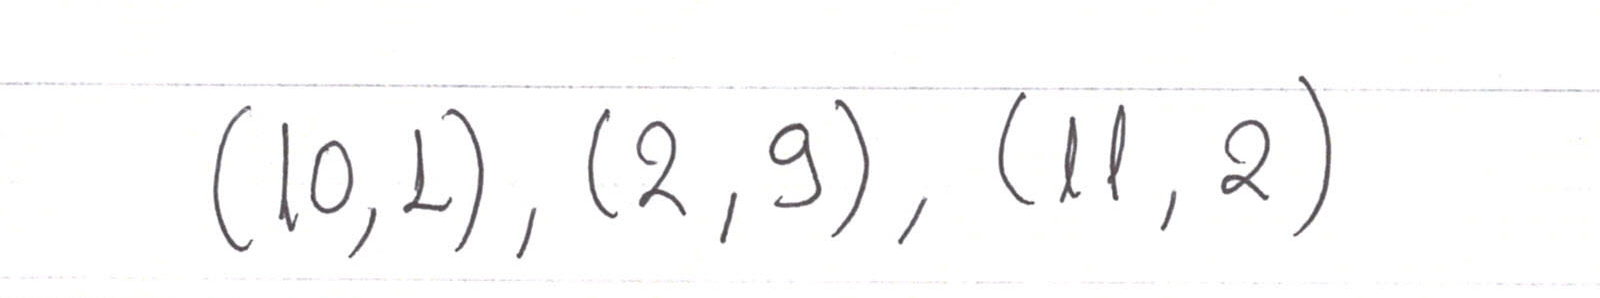 (10,1), (2,9), (11,2)